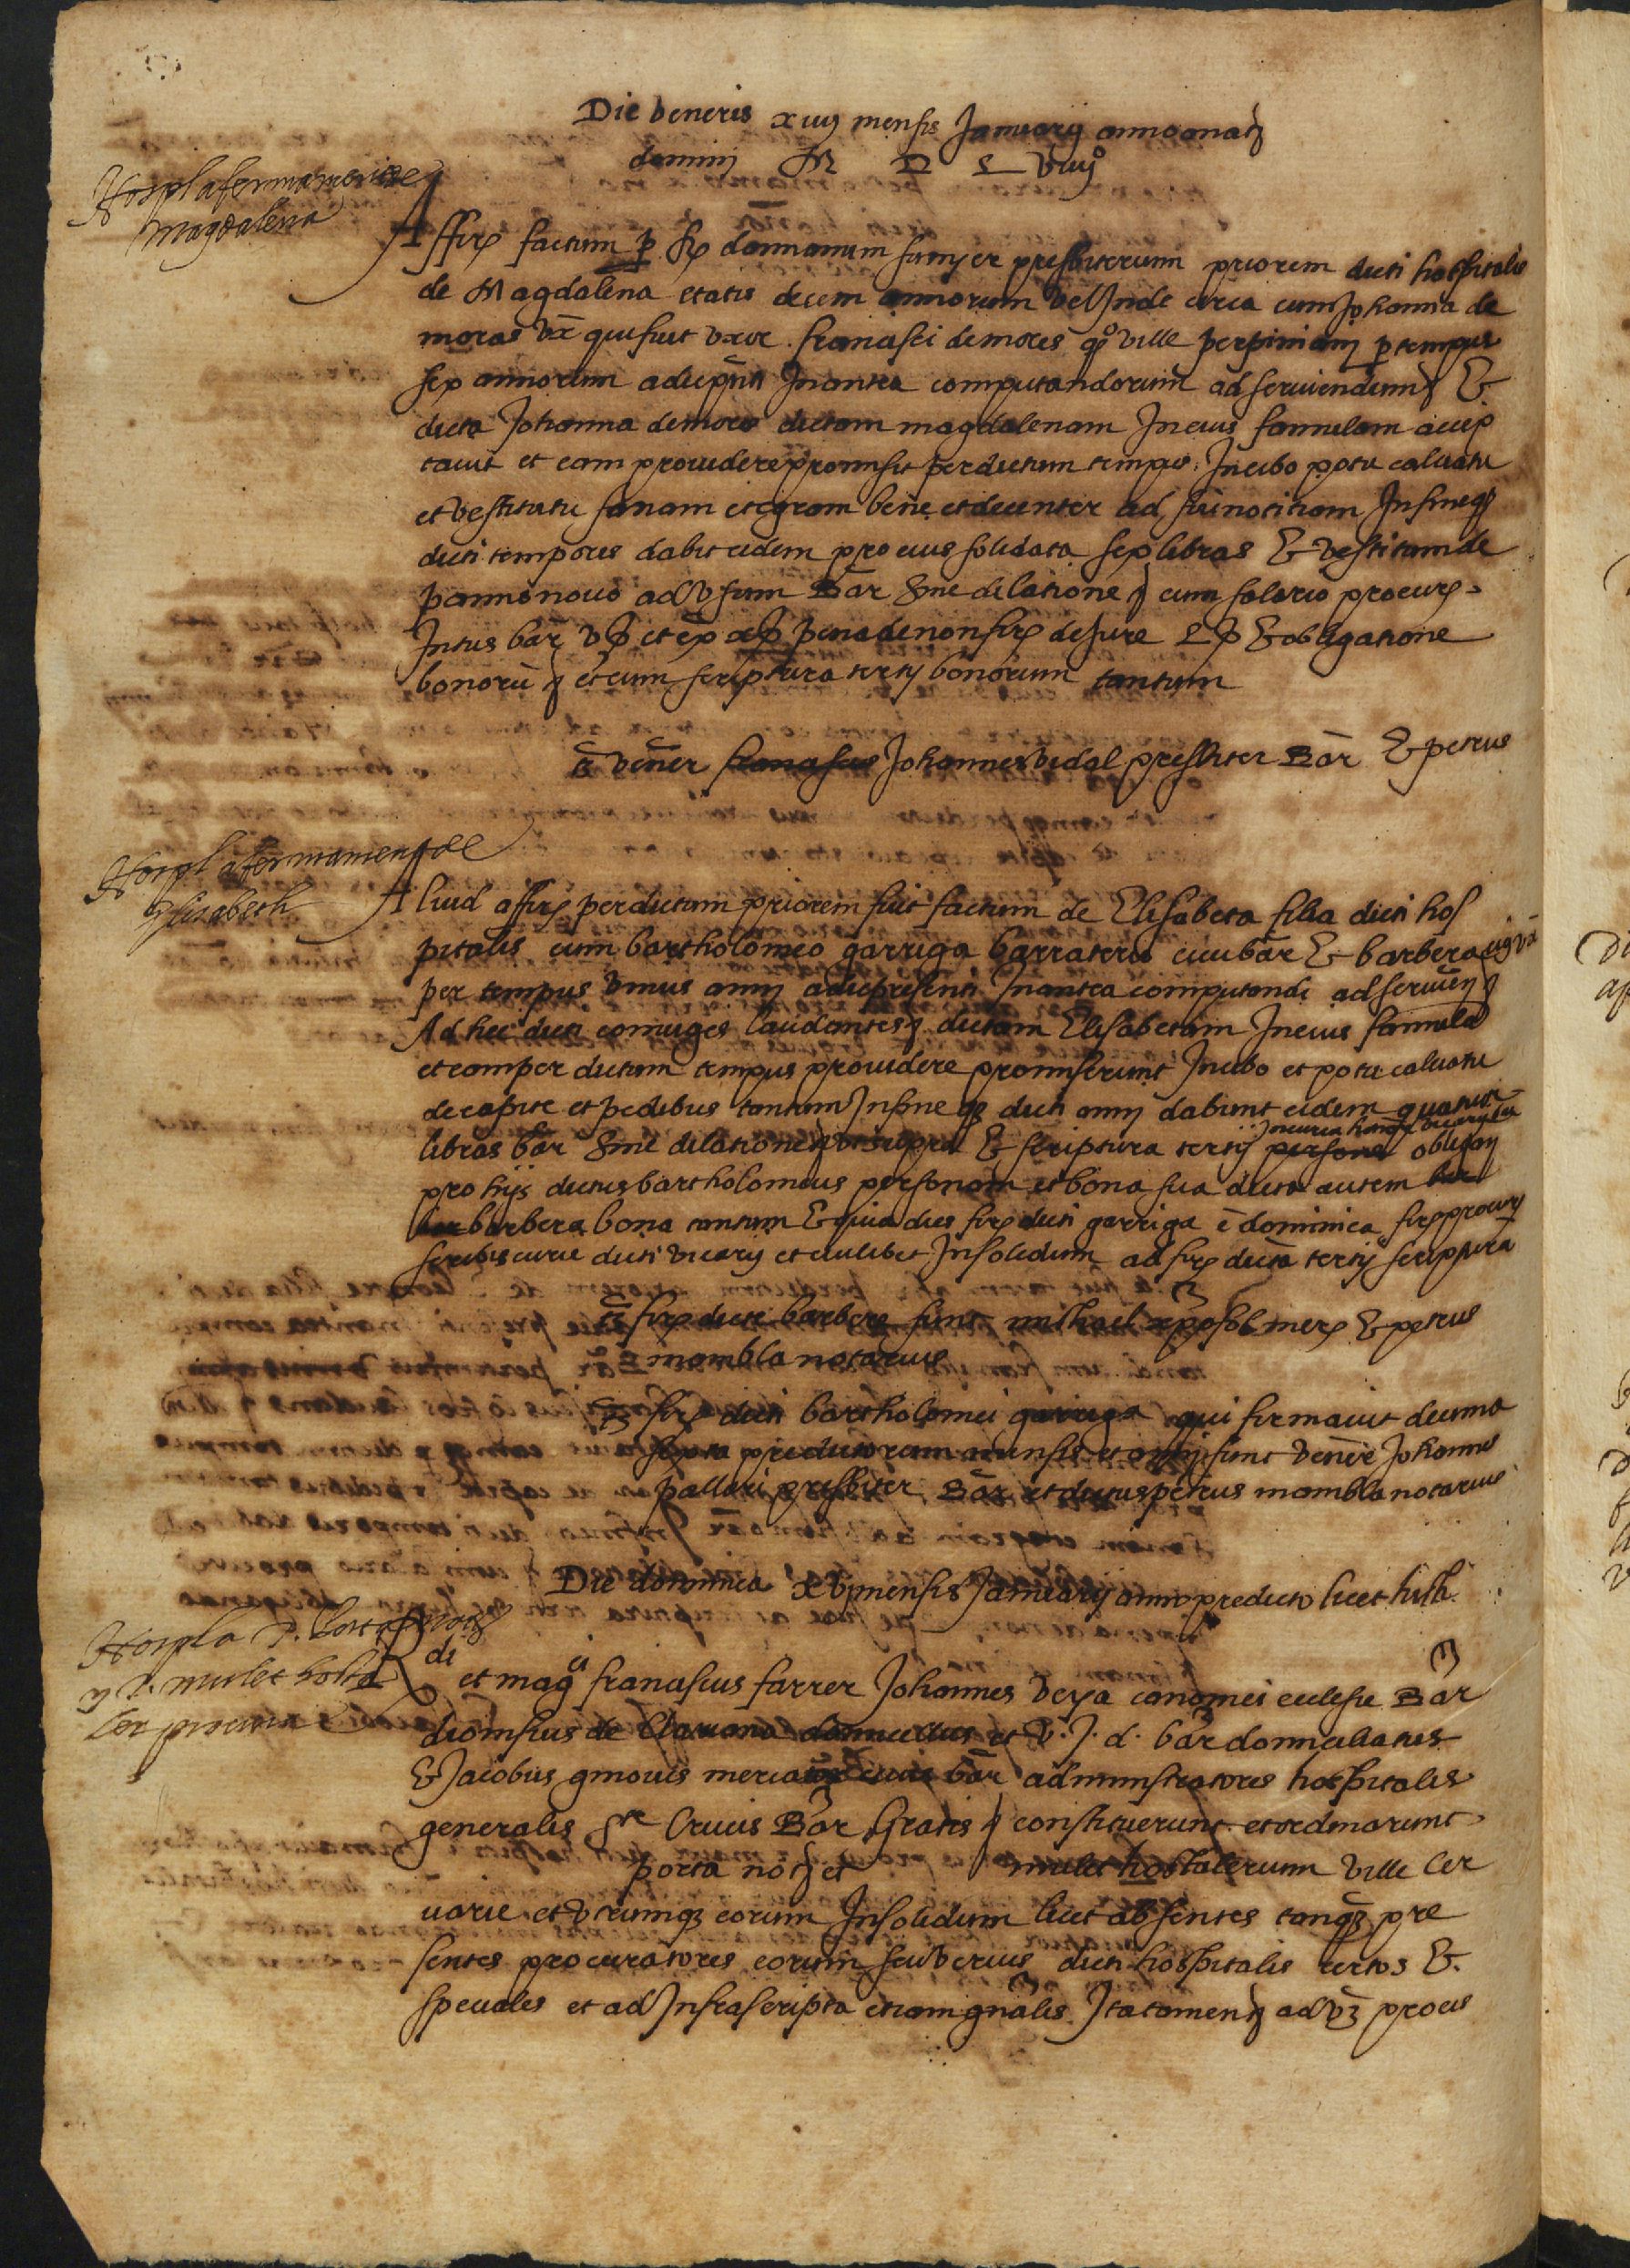 Die veneris xiiij mensis Januarij anno a natz
domini M D L viiijº
Hospl afermament de
magdalena
Affirз factum p Rз damianum sunyer presbiterum priorem dicti hospitalis
de Magdalena etatis decem annorum vel Inde circa cum Johanna de
moras vx que fuit uxor francisci de mores qº ville perpiniani p tempus
sex annorum a die pnti Inantea computandorum ad serviendum &
dicta Johanna demores dictam magdalenam In eius famulam accep
tavit et eam providere promisit per dictum tempus In cibo potu calciatu
et vestitutu sanam et egram bene et decenter ad sui notitiam In fine qз
dicti temporis dabit eidem pro eius soldata sex libras & vestitum de
panno novo ad usum Bar sine dilatione cum salario procurз
Intus bar v β et exº x β pena de non firз de Jure L β & obligatione
bonorū et cum scriptura tertij bonorum tantum
tˢ vener franciscus Johannes vidal presbiter Bar & petrus
Hospl afermament de
Elisabeth
Aliud affirз per dictum priorem fuit factum de Elisabeta filia dicti hos
pitalis cum bartholomeo garriga barraterio cive bar & barbera eius vx
per tempus unius anni a die presenti Inantea computandi ad servien
Ad hec dicti coniuges laudantes dictam Elisabetam In eius famula
et eam per dictum tempus providere promiserunt In cibo et potu calciatu
de capite et pedibus tantum In fine qз dicti anni dabunt eidem quatuor
libras bar sine dilatione ut supra & scriptura tertij persone obligan
In curia honor vicarij bar
pro hijs dictus bartholomeus personam et bona sua dicta autem bar
bar barbera bona tantum & quia dies firз dicti garriga ē dominica firз procur
scribis curie dicti vicarij et cuilibet Insolidum ad firз dictā tertij scriptura
tˢ firз dicte barbere sunt michael merз & petrus
mambla notarius
tˢ firз dicti bartholomei garriga qui firmavit decima
sexta predictorum mensis et anni sunt vener Johannes
pallari presbiter Bar et dictus petrus mambla notarius
Die dominica xvj mensis Januarij anno predicto licet
Hospl a P. porta notз
y P. mulet hostal
Cer procura
Rdi et magci franciscus farrer Johannes vera canonici ecclesie Bar
dionisius de Clariana domicellus et V. J. d. bar domiciliatus
& Jacobus ginovis mercator civis bar administratores hospitalis
generalis Ste Crucis Bar Gratis constituerunt et ordinarunt
porta notз et mulet hostalerium ville Cer
varie et utrumqз eorum Insolidum licet absentes tanqз pre
sentes procuratores eorum seu verius dicti hospitalis certos &
speciales et ad Infrascripta etiam gnales Ita tamen ad vз pro eis